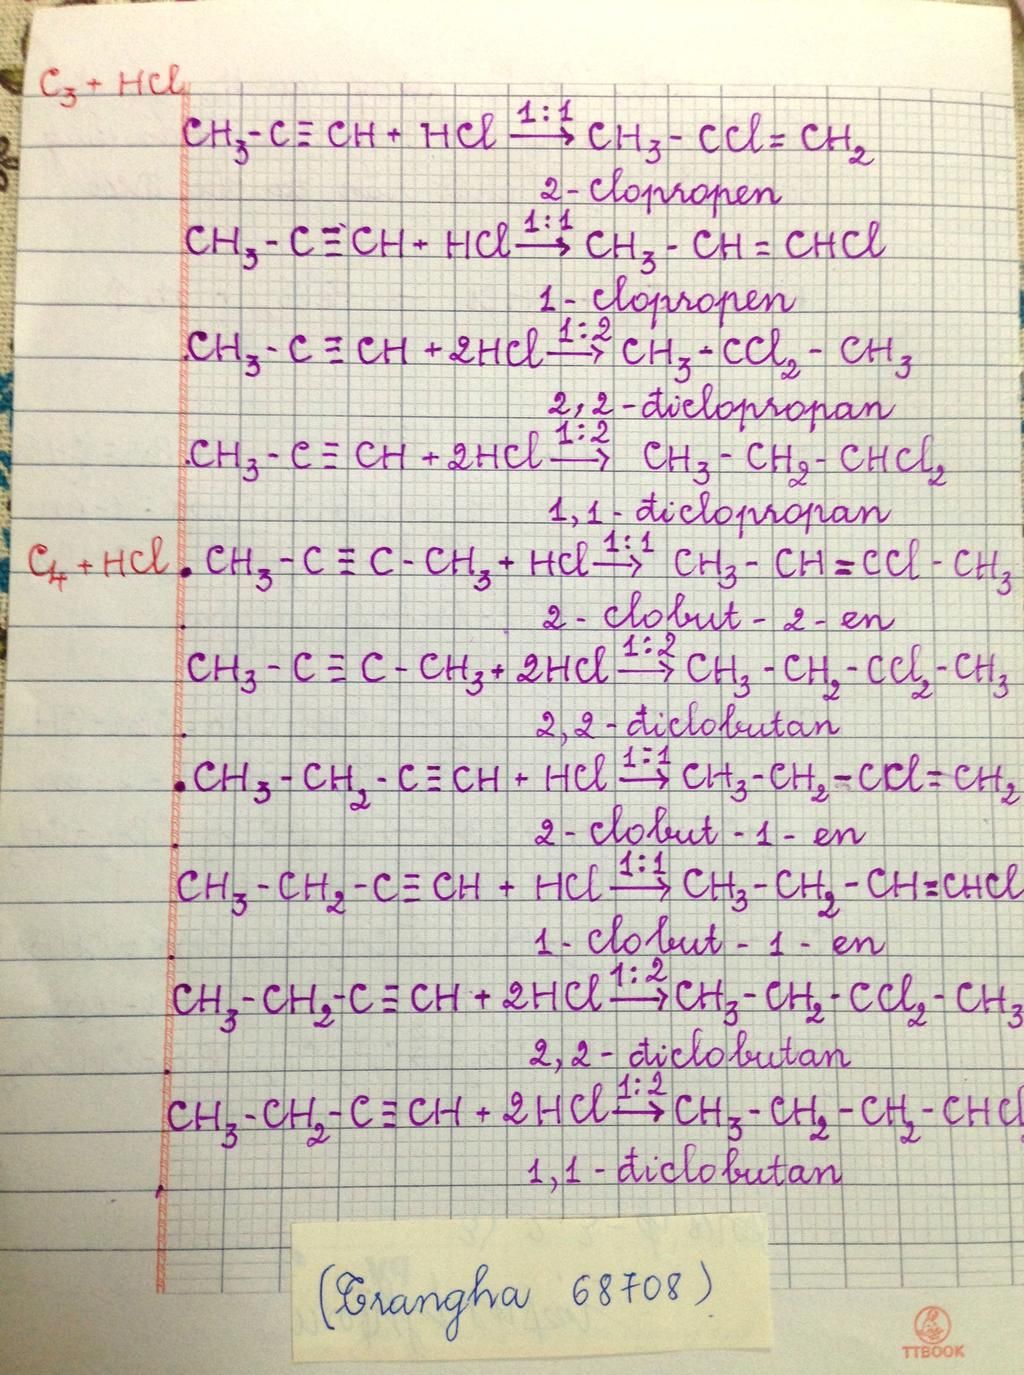 C₃ + HCl
CH₃ - C ≡ CH + HCl 1:1→ CH₃ - CCl = CH₂
2 - clopropen
CH₃ - C ≡ CH + HCl 1:1→ CH₃ - CH = CHCl
1 - clopropen
CH₃ - C ≡ CH + 2HCl 1:2→ CH₃ - CCl₂ - CH₃
2,2 - điclopropan
CH₃ - C ≡ CH + 2HCl 1:2→ CH₃ - CH₂ - CHCl₂
1,1 - điclopropan
C₄ + HCl • CH₃ - C ≡ C - CH₃ + HCl 1:1→ CH₃ - CH = CCl - CH₃
2 - clobut - 2 - en
CH₃ - C ≡ C - CH₃ + 2HCl 1:2→ CH₃ - CH₂ - CCl₂ - CH₃
2,2 - điclobutan
• CH₃ - CH₂ - C ≡ CH + HCl 1:1→ CH₃ - CH₂ - CCl = CH₂
2 - clobut - 1 - en
CH₃ - CH₂ - C ≡ CH + HCl 1:1→ CH₃ - CH₂ - CH = CHCl
1 - clobut - 1 - en
CH₃ - CH₂ - C ≡ CH + 2HCl 1:2→ CH₃ - CH₂ - CCl₂ - CH₃
2,2 - điclobutan
CH₃ - CH₂ - C ≡ CH + 2HCl 1:2→ CH₃ - CH₂ - CH₂ - CHCl
1,1 - điclobutan
(Trangha 68708)
TTBOOK